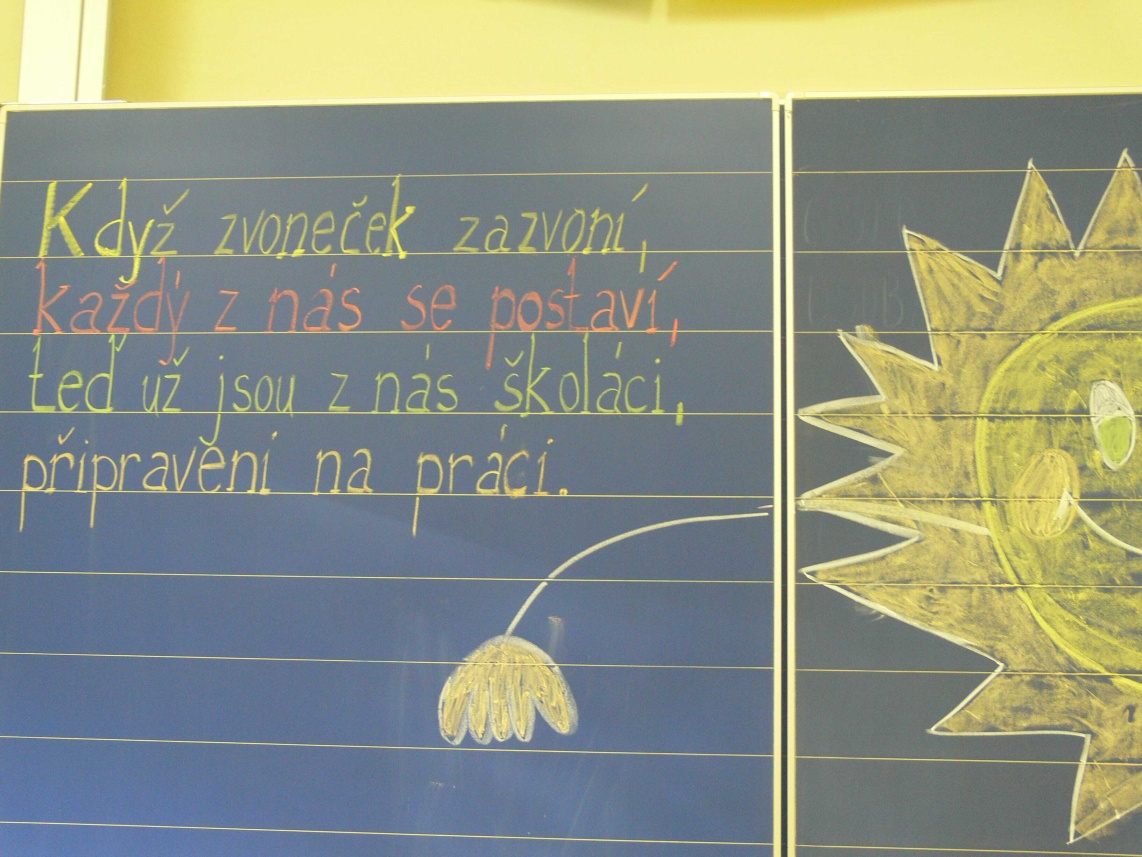 Když zvoneček zazvoní,
každý z nás se postaví,
teď už jsou z nás školáci,
připraveni na práci.